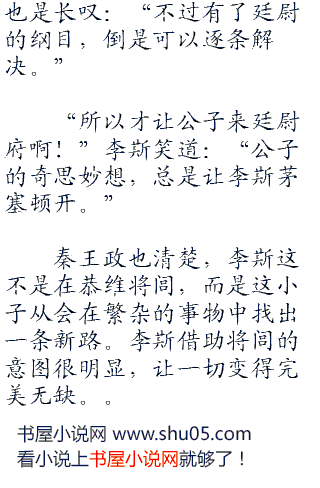 也是长叹：“不过有了廷尉
的纲目，倒是可以逐条解
决。”
“所以才让公子来廷尉
府啊！”李斯笑道：“公子
的奇思妙想，总是让李斯茅
塞顿开。”
秦王政也清楚，李斯这
不是在恭维将闾，而是这小
子从会在繁杂的事物中找出
一条新路。李斯借助将闾的
意图很明显，让一切变得完
美无缺。。
书屋小说网 www.shu05.com
看小说上书屋小说网就够了！